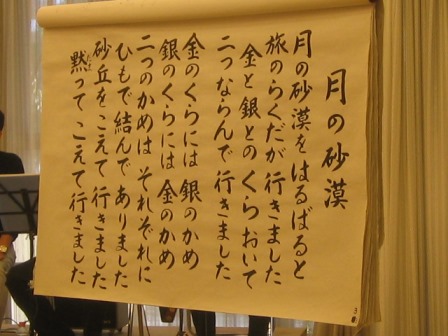 月の砂漠
月の砂漠をはるばると
旅のらくだが行きました
金と銀とのくらおいて
二つならんで行きました
金のくらには銀のかめ
銀のくらには金のかめ
二つのかめはそれぞれに
ひもで結んでありました
砂丘をこえて行きました
黙ってこえて行きました